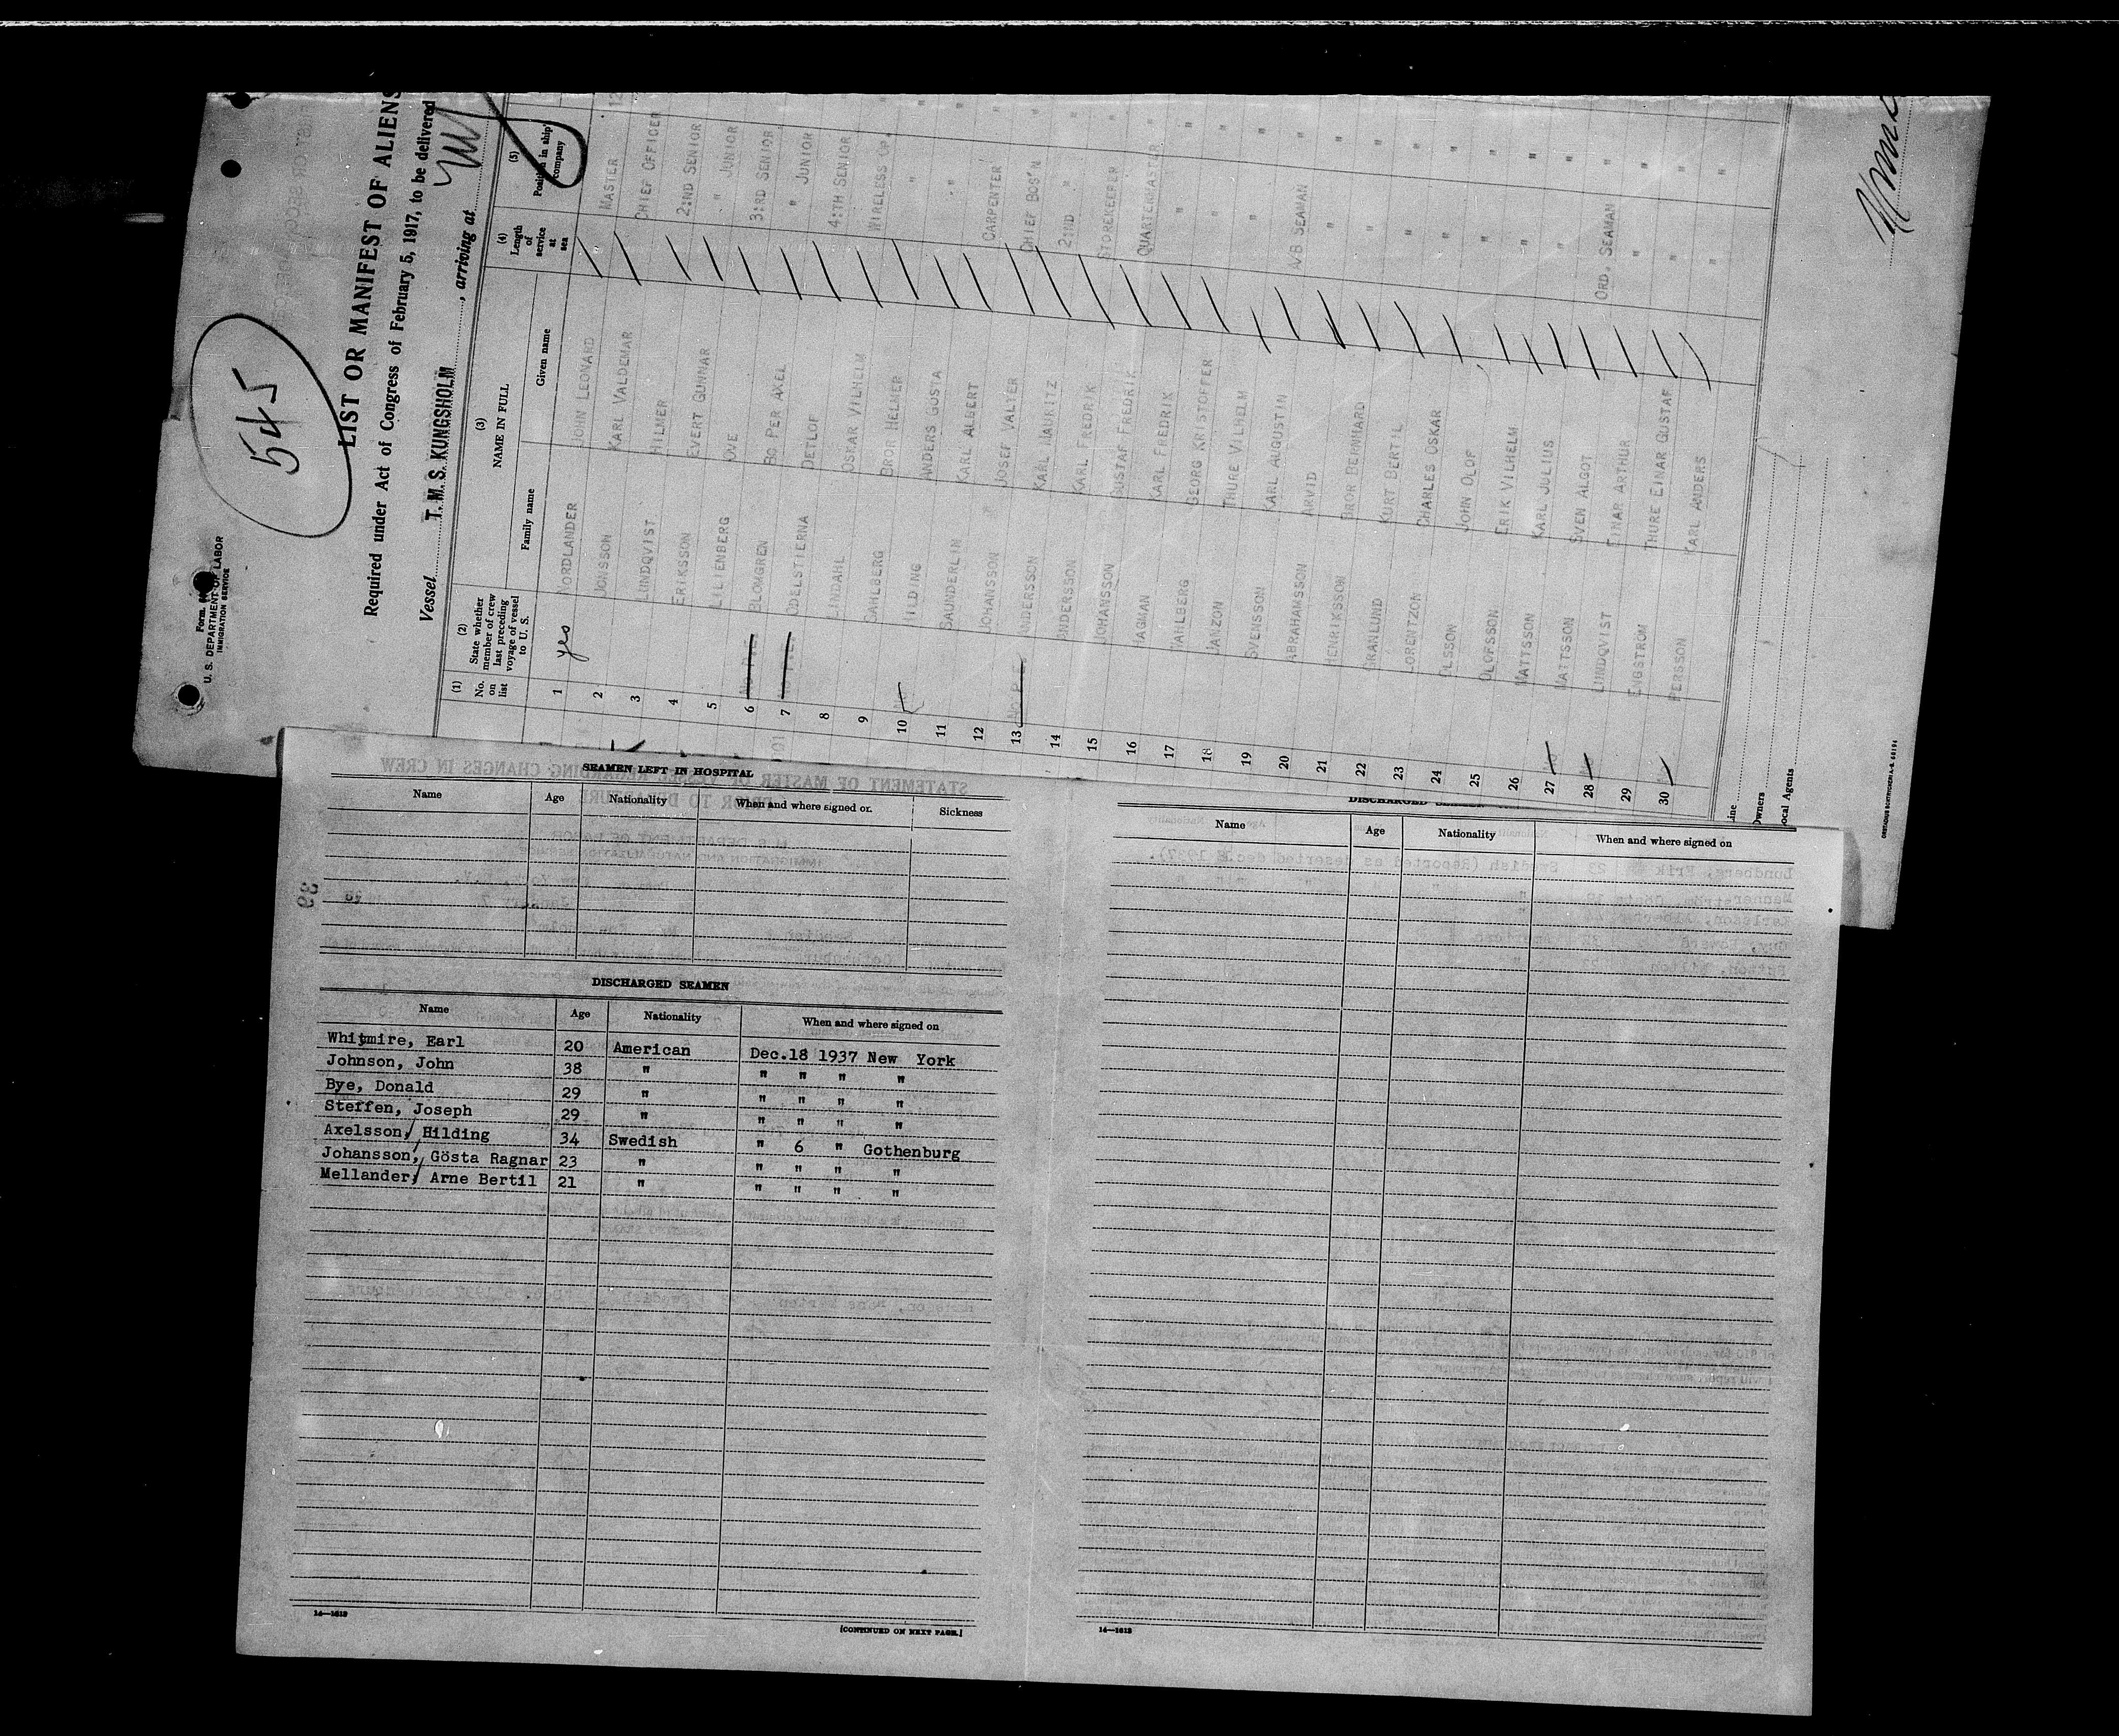 545
Form
U. S. DEPARTMENT OF LABOR
IMMIGRATION SERVICE
LIST OR MANIFEST OF ALIENS
Required under Act of Congress of February 5, 1917, to be delivered
Vessel T. M. S. KUNGSHOLM, arriving at
(1) No. on list (2) State whether member of crew last preceding voyage of vessel to U. S. (3) NAME IN FULL Family name Given name (4) Length of service at sea (5) Position in ship's company
1 yes NORDLANDER JOHN LEONARD MASTER
2 JONSSON KARL VALDEMAR CHIEF OFFICER
3 LUNDQVIST HILMER 2:ND SENIOR
4 ERIKSSON EVERT GUNNAR " JUNIOR
5 LILIENBERG OVE 3:RD SENIOR
6 BLOMGREN BO PER AXEL " JUNIOR
7 ODELSTIERNA DETLOF 4:TH SENIOR
8 LINDAHL OSKAR VILHELM WIRELESS OP.
9 DAHLBERG BROR HELMER "
10 TILDING ANDERS GUSTA "
11 SAUNDERLIN KARL ALBERT CARPENTER
12 JOHANSSON JOSEF VALTER CHIEF BOS'N
13 ANDERSSON KARL LAURITZ 2:ND "
14 ANDERSSON KARL FREDRIK STOREKEEPER
15 JOHANSSON GUSTAF FREDRIK QUARTERMASTER
16 HAGMAN KARL FREDRIK "
17 DAHLBERG GEORG KRISTOFFER "
18 JANZON THURE VILHELM "
19 SVENSSON KARL AUGUSTIN A/B SEAMAN
20 ABRAHAMSSON ARVID "
21 HENRIKSSON BROR BERNHARD "
22 GRANLUND KURT BERTIL "
23 LORENTZON CHARLES OSKAR "
24 OLSSON JOHN OLOF "
25 OLOFSSON ERIK VILHELM "
26 MATTSSON KARL JULIUS "
27 MATTSSON SVEN ALGOT ORD. SEAMAN
28 LUNDQVIST EINAR ARTHUR "
29 ENGSTRÖM THURE EINAR GUSTAF "
30 PERSSON KARL ANDERS "
Line
Owners
Local Agents
SEAMEN LEFT IN HOSPITAL
Name Age Nationality When and where signed on. Sickness
39
DISCHARGED SEAMEN
Name Age Nationality When and where signed on
Whitmire, Earl 20 American Dec.18 1937 New York
Johnson, John 38 " " " " "
Bye, Donald 29 " " " " "
Steffen, Joseph 29 " " " " "
Axelsson, Hilding 34 Swedish " 6 " Gothenburg
Johansson, Gösta Ragnar 23 " " " " "
Mellander, Arne Bertil 21 " " " " "
14—1613
[CONTINUED ON NEXT PAGE.]
DISCHARGED SEAMEN
Name Age Nationality When and where signed on
14—1613